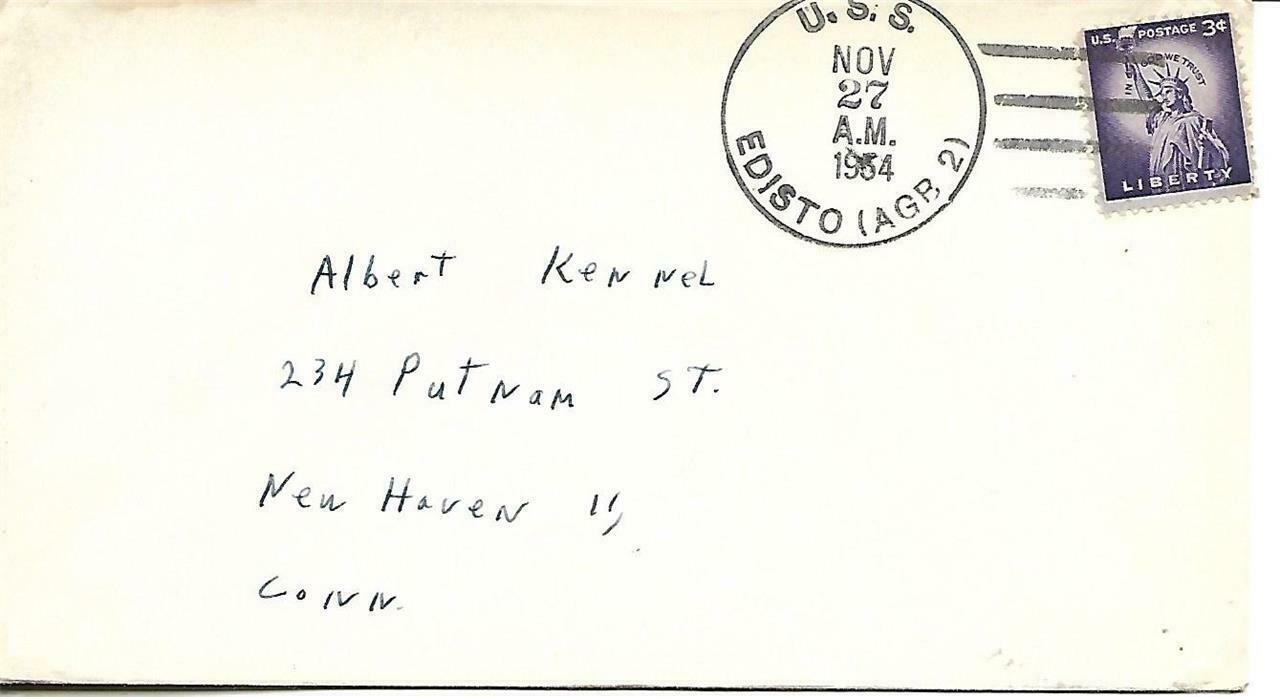 U.S.S.
NOV
27
A.M.
1954
EDISTO (AGB 2)
U.S. POSTAGE 3¢
IN GOD WE TRUST
LIBERTY
Albert Kennel
234 Putnam St.
New Haven 11,
Conn.